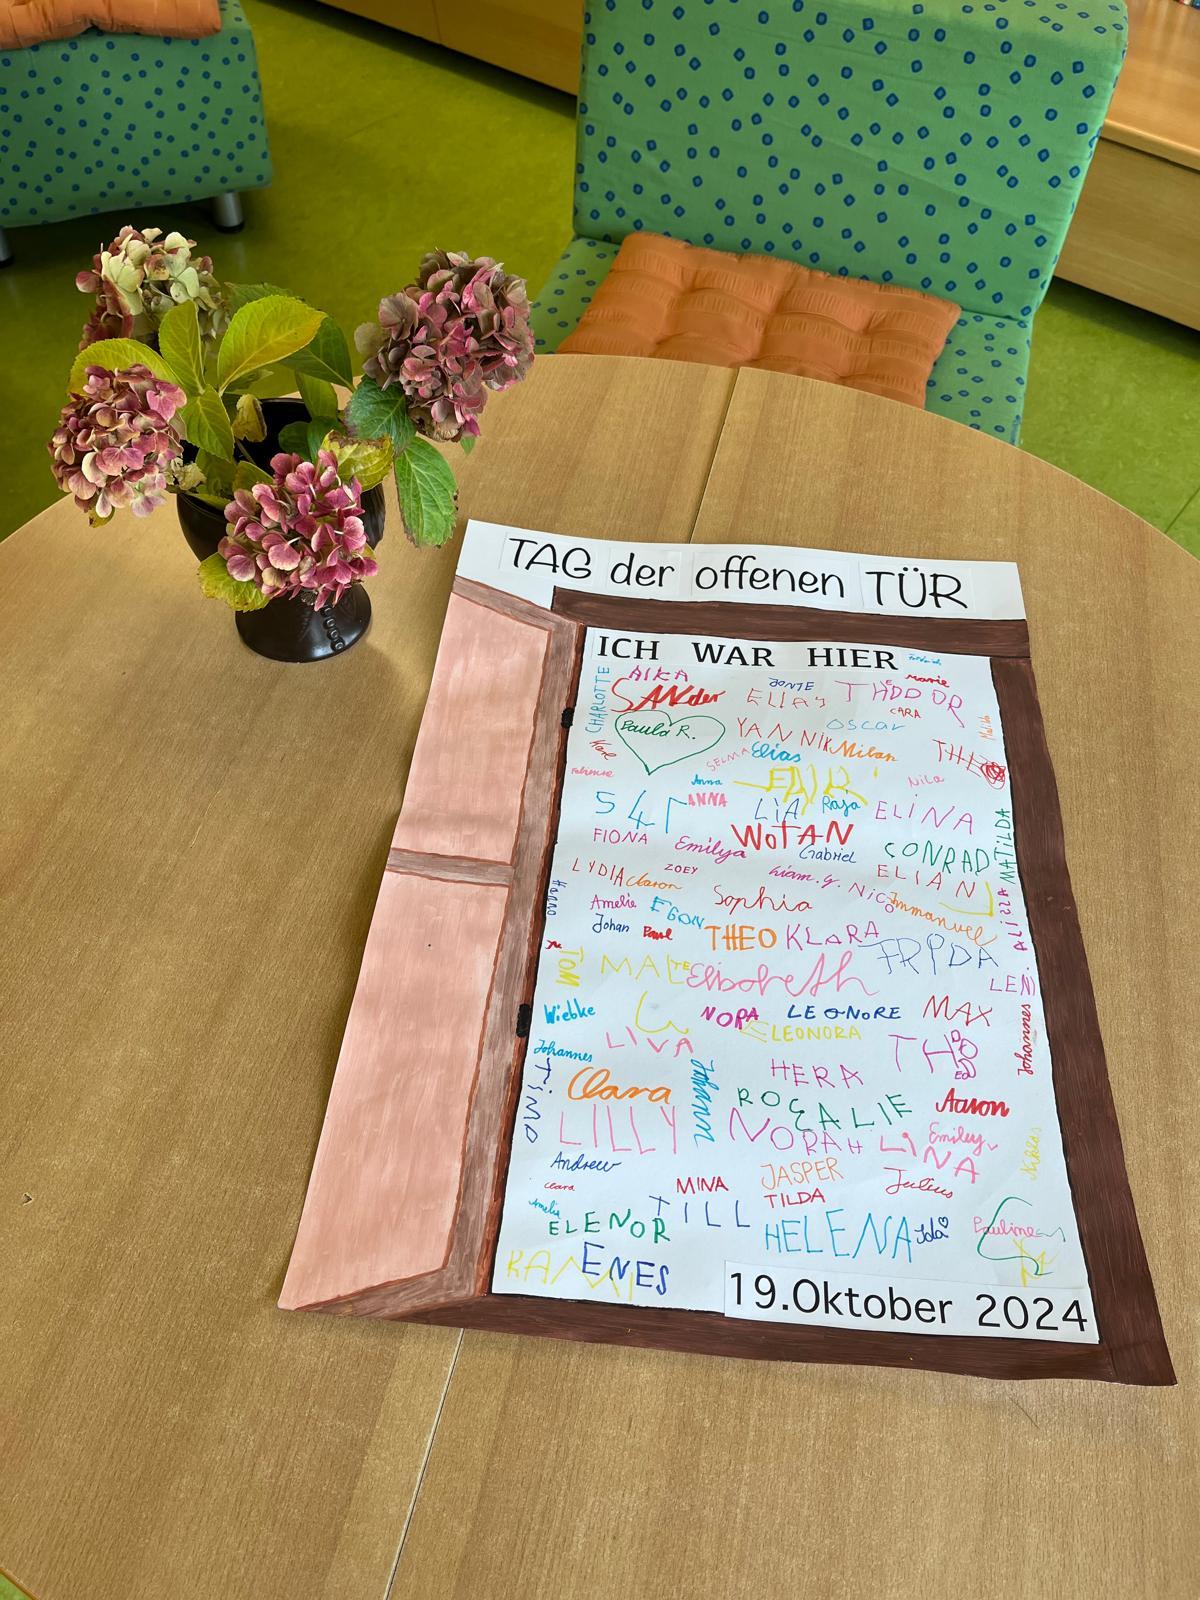 TAG der offenen TÜR
ICH WAR HIER
AIKA
JONTE
Marie
CHARLOTTE
SANder
ELIAS
THEODOR
CARA
Paula R.
YANNIK
Oscar
Milan
SELMA
Elias
EMIR
Nila
Anna
ANNA
LIA
Raja
ELINA
MATILDA
FIONA
Emilya
WOTAN
Gabriel
CONRAD
ZOEY
ELIAN
LYDIA
Liam.g.
Nico
Immanuel
Sophia
Amelie
EGON
Johan
Paul
THEO
KLARA
FRIDA
TOM
MALTE
Elisabeth
LENI
Wiebke
NORA
LEONORE
MAX
ELEONORA
LIVA
Johannes
Johannes
TIMO
HERA
Clara
Johann
ROSALIE
Aaron
LILLY
NORAH
LINA
Emiley
Niklas
Andrew
JASPER
MINA
TILDA
Julius
Clara
Amelie
TILL
ELENOR
HELENA
Ida
Pauline
ENES
19.Oktober 2024